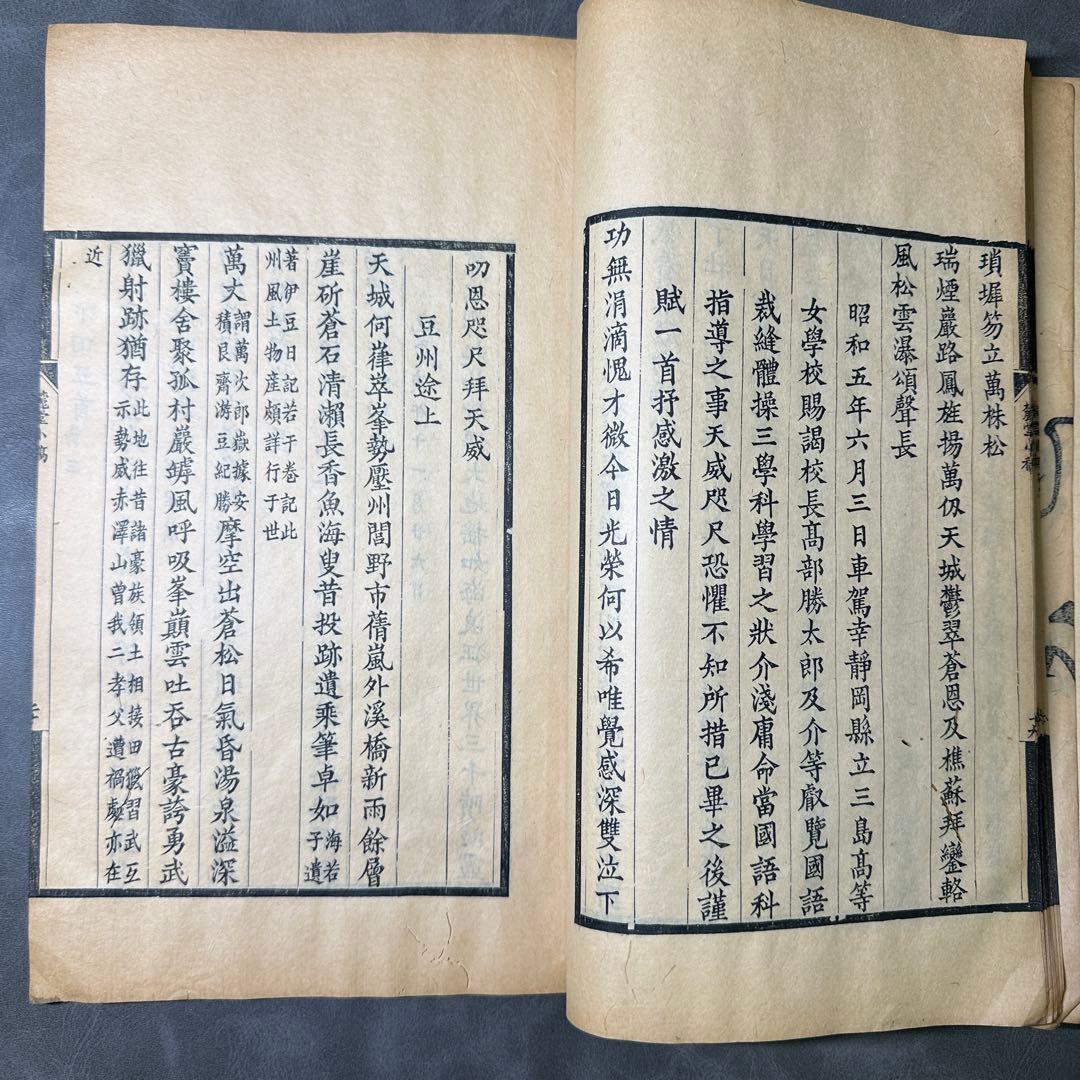 瑣墀笏立萬株松
瑞煙巖路鳳旌揚萬仭天城鬱翠蒼恩及樵蘇拜鑾輅
風松雲瀑頌聲長
昭和五年六月三日車駕幸靜岡縣立三島髙等
女學校賜謁校長髙部勝太郎及介等叡覽國語
裁縫體操三學科學習之狀介淺庸命當國語科
指導之事天威咫尺恐懼不知所措已畢之後謹
賦一首抒感激之情
功無涓滴愧才微今日光榮何以希唯覺感深雙泣下
叨恩咫尺拜天威
豆州途上
天城何嵂萃峯勢壓州閭野市蒨嵐外溪橋新雨餘層
崖斫蒼石清瀨長香魚海叟昔投跡遺乘筆卓如海若子遺
著伊豆日記若干卷記此州風土物産頗詳行于世
萬丈謂萬次郎嶽據安積艮齋游豆紀勝摩空出蒼松日氣昏湯泉溢深
竇樓舍聚孤村巖罅風呼吸峯巔雲吐吞古豪誇勇武
獵射跡猶存此地往昔諸豪族領土相接田獵習武互示勢威赤澤山曾我二孝父遭禍處亦在
近